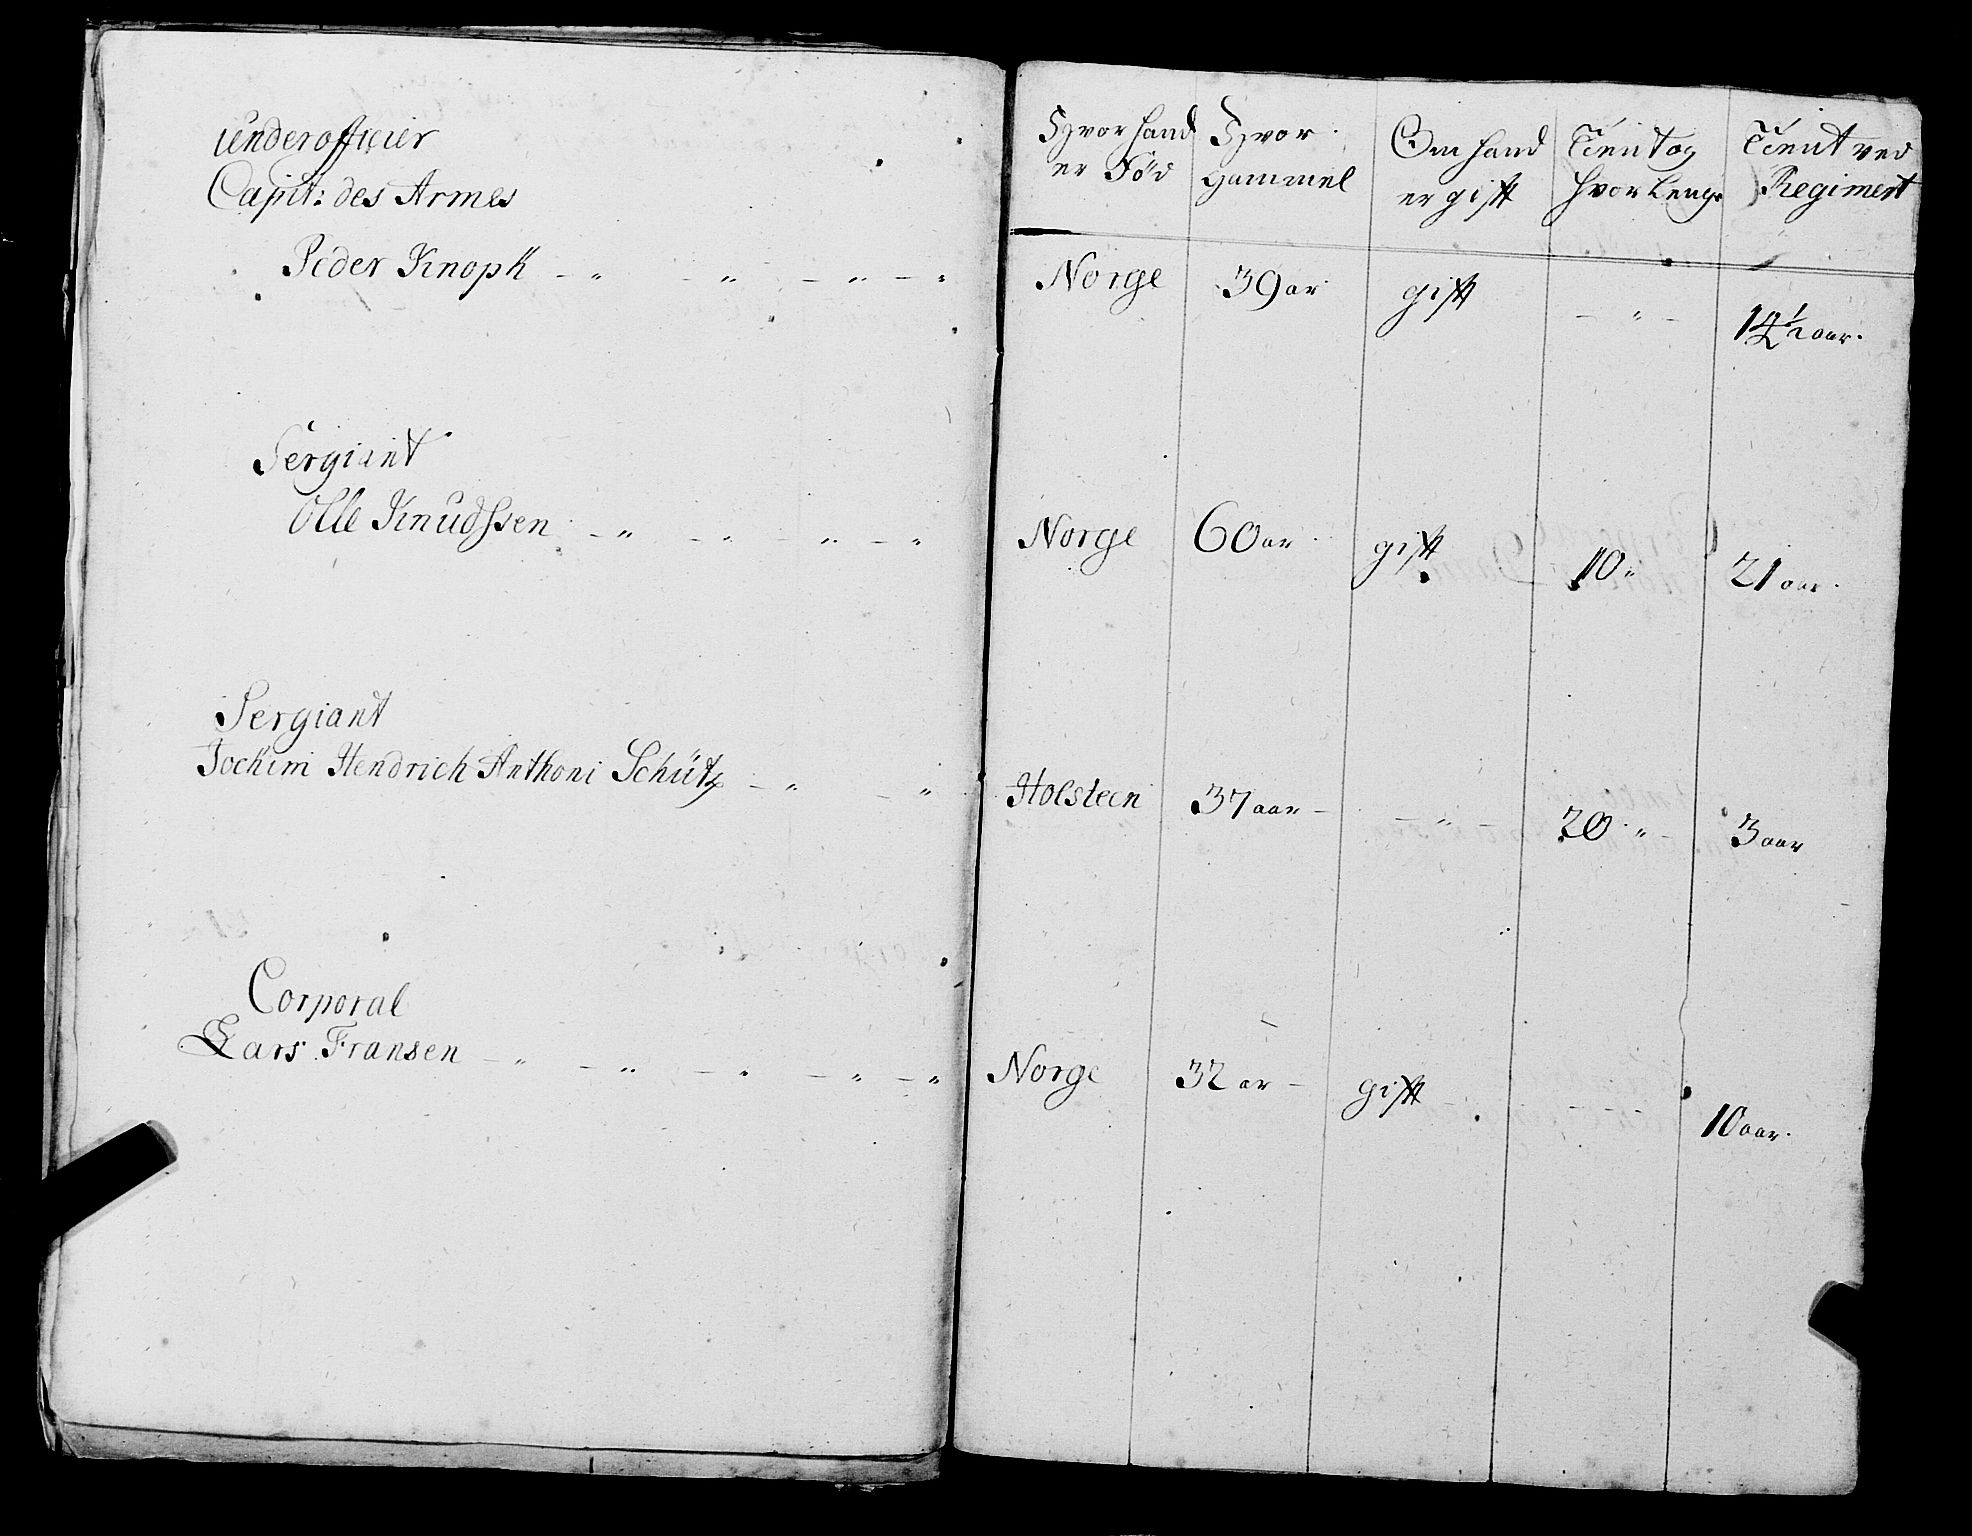 Underofficier
Capit: des Armes
Peder Knoph — " — " — " — "
Sergiant
Olle Knudssen — " — " — " — "
Sergiant
Jochim Hendrich Anthoni Schütz — " — "
Corporal
Lars Fransen — " — " — " — " — "
Hvor hand er Fød
Hvor Gammel
Om hand er gift
Tient og hvor Lenge
Tient ved Regiment
Norge 39 ar gift — " — 14 1/2 aar.
Norge 60 ar gift 10 " 21 aar.
Holsteen 37 aar — — " — 20 " — 3 aar
Norge 32 ar — gift - - - - 10 aar.